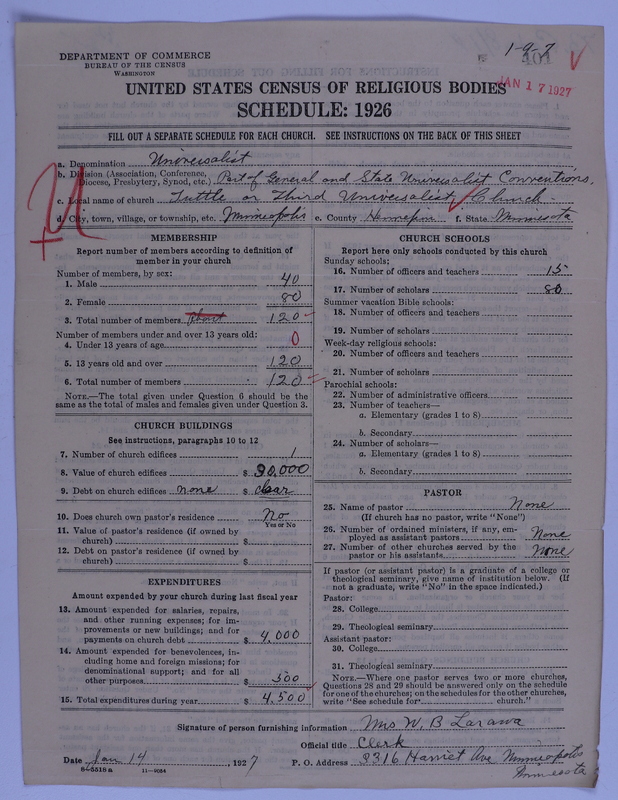 1-9-7
404
DEPARTMENT OF COMMERCE
BUREAU OF THE CENSUS
WASHINGTON
JAN 17 1927
UNITED STATES CENSUS OF RELIGIOUS BODIES
SCHEDULE: 1926
FILL OUT A SEPARATE SCHEDULE FOR EACH CHURCH. SEE INSTRUCTIONS ON THE BACK OF THIS SHEET
a. Denomination Universalist
b. Division (Association, Conference, Diocese, Presbytery, Synod, etc.) Part of General and State Universalist Conventions.
c. Local name of church Tuttle or Third Universalist Church
d. City, town, village, or township, etc. Minneapolis e. County Hennepin f. State Minnesota
MEMBERSHIP
Report number of members according to definition of
member in your church
Number of members, by sex:
1. Male 40
2. Female 80
3. Total number of members about 120
Number of members under and over 13 years old:
4. Under 13 years of age 0
5. 13 years old and over 120
6. Total number of members 120
NOTE.—The total given under Question 6 should be the
same as the total of males and females given under Question 3.
CHURCH BUILDINGS
See instructions, paragraphs 10 to 12
7. Number of church edifices 1
8. Value of church edifices $ 30,000
9. Debt on church edifices none $ clear
10. Does church own pastor's residence No
Yes or No
11. Value of pastor's residence (if owned by
church) $
12. Debt on pastor's residence (if owned by
church) $
EXPENDITURES
Amount expended by your church during last fiscal year
13. Amount expended for salaries, repairs,
and other running expenses; for im-
provements or new buildings; and for
payments on church debt $ 4,000
14. Amount expended for benevolences, in-
cluding home and foreign missions; for
denominational support; and for all
other purposes $ 500
15. Total expenditures during year $ 4,500
CHURCH SCHOOLS
Report here only schools conducted by this church
Sunday schools:
16. Number of officers and teachers 15
17. Number of scholars 80
Summer vacation Bible schools:
18. Number of officers and teachers
19. Number of scholars
Week-day religious schools:
20. Number of officers and teachers
21. Number of scholars
Parochial schools:
22. Number of administrative officers
23. Number of teachers—
a. Elementary (grades 1 to 8)
b. Secondary
24. Number of scholars—
a. Elementary (grades 1 to 8)
b. Secondary
PASTOR
25. Name of pastor None
(If church has no pastor, write "None")
26. Number of ordained ministers, if any, em-
ployed as assistant pastors None
27. Number of other churches served by the
pastor or his assistants None
If pastor (or assistant pastor) is a graduate of a college or
theological seminary, give name of institution below. (If
not a graduate, write "No" in the space indicated.)
Pastor:
28. College
29. Theological seminary
Assistant pastor:
30. College
31. Theological seminary
NOTE.—Where one pastor serves two or more churches,
Questions 28 and 29 should be answered only on the schedule
for one of the churches; on the schedules for the other churches,
write "See schedule for church."
Signature of person furnishing information Mrs W. B Larawa
Official title Clerk
Date Jan 14, 1927 P. O. Address 3316 Harriet Ave Minneapolis
Minnesota
8-5518a 11-9084